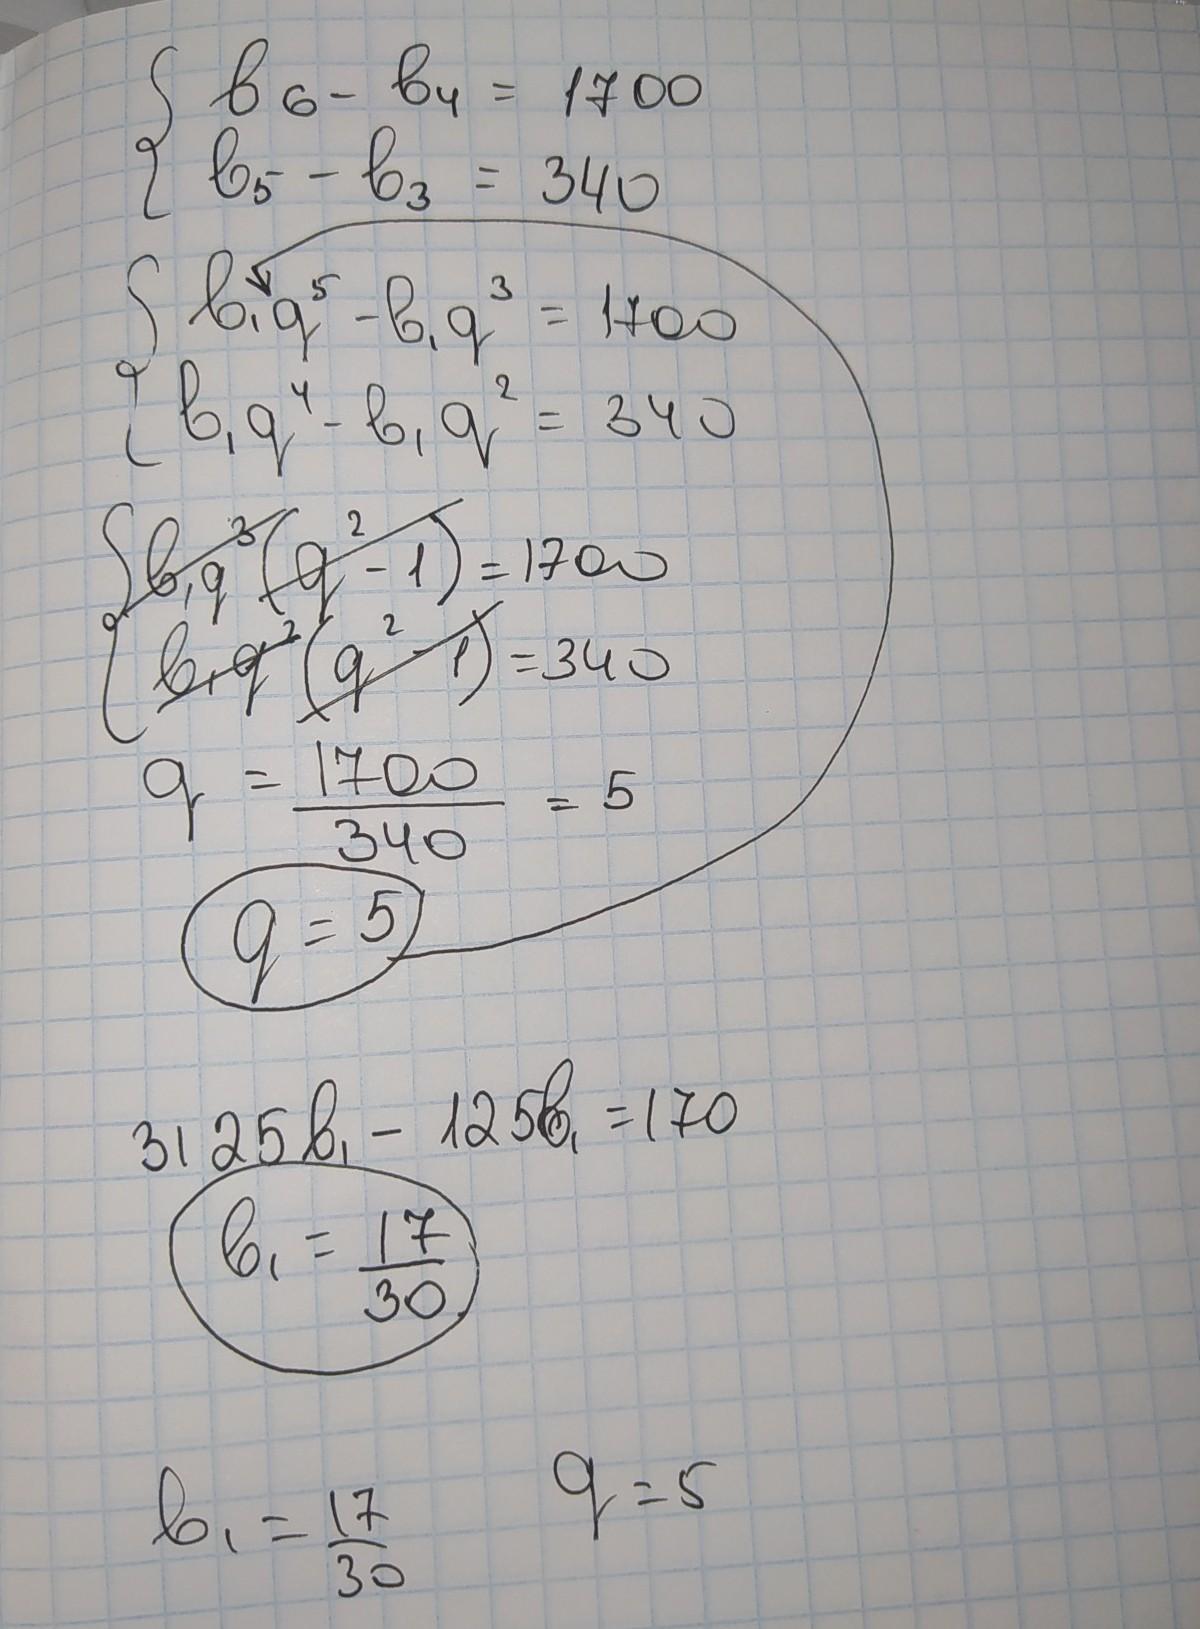 b₆ - b₄ = 1700
b₅ - b₃ = 340
b₁q⁵ - b₁q³ = 1700
b₁q⁴ - b₁q² = 340
b₁q³(q² - 1) = 1700
b₁q²(q² - 1) = 340
q = 1700/340 = 5
q = 5
3125b₁ - 125b₁ = 170
b₁ = 17/30
b₁ = 17/30 q = 5